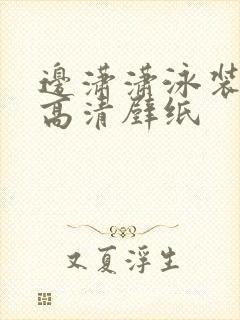 邊潇潇泳装
高清壁纸
又夏浮生